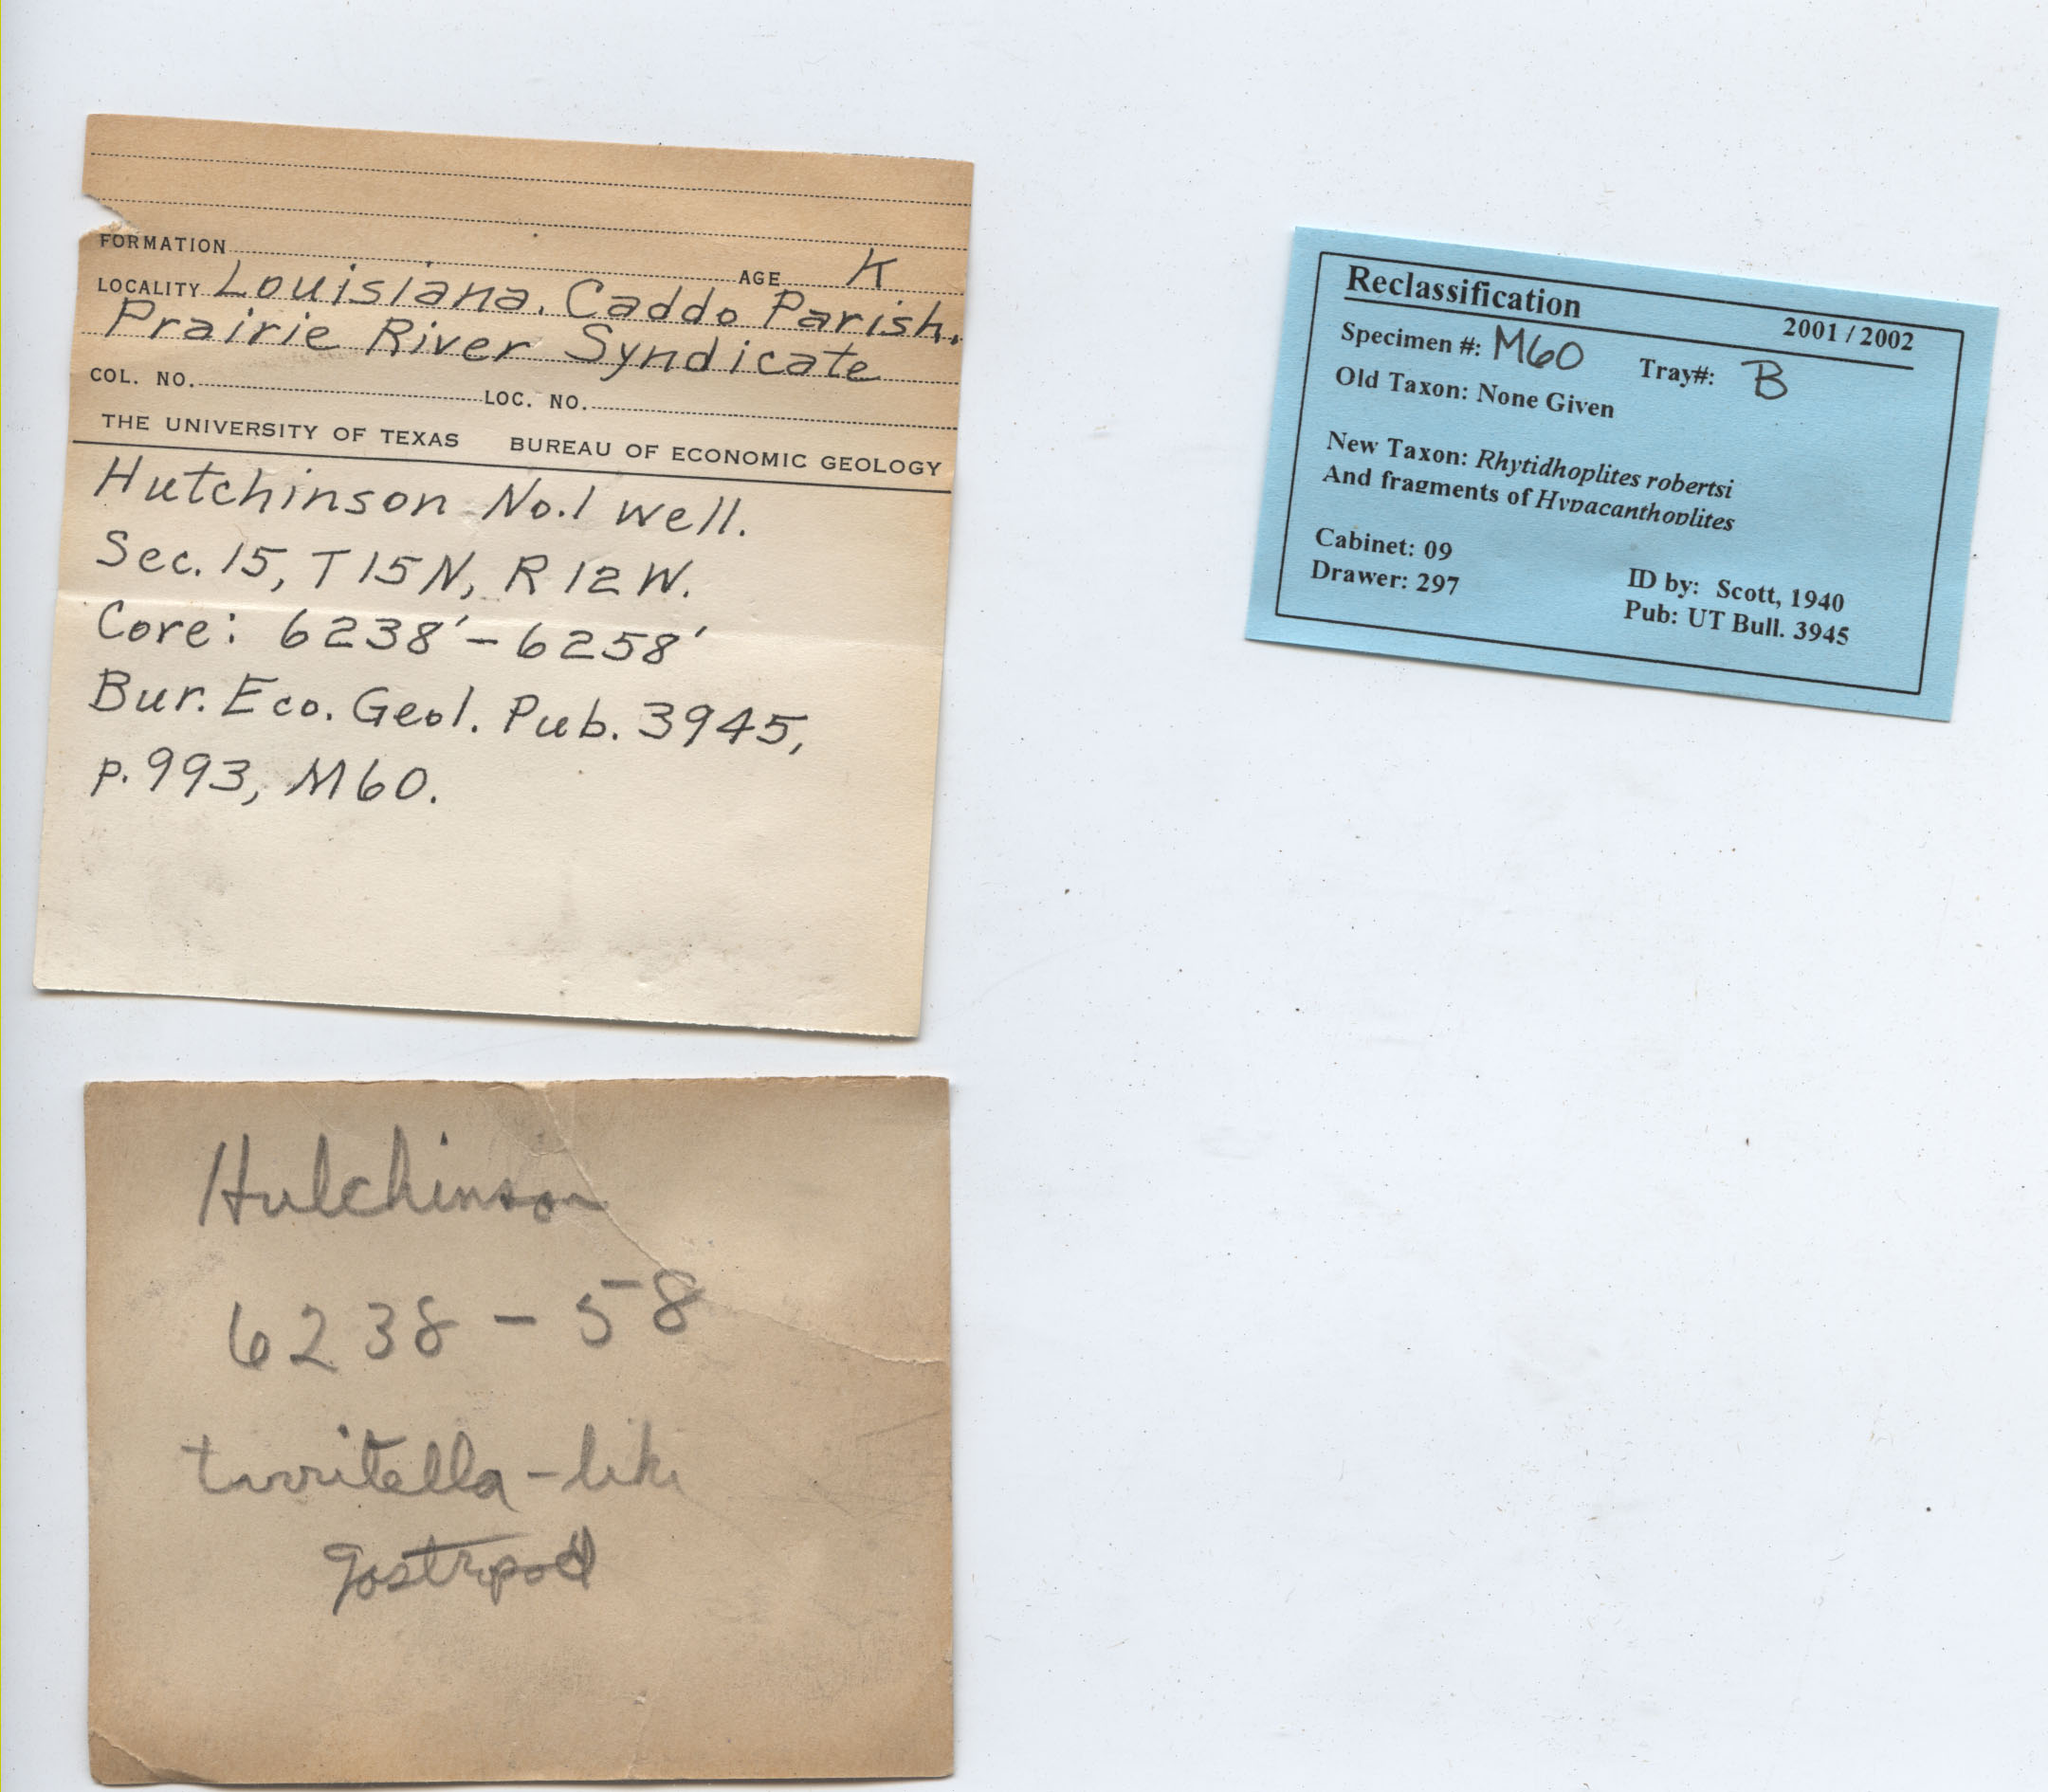 FORMATION AGE K
LOCALITY Louisiana, Caddo Parish.
Prairie River Syndicate
COL. NO. LOC. NO.
THE UNIVERSITY OF TEXAS BUREAU OF ECONOMIC GEOLOGY
Hutchinson No.1 well.
Sec. 15, T15N, R12W.
Core: 6238'-6258'
Bur. Eco. Geol. Pub. 3945,
p. 993, M60.
Reclassification 2001 / 2002
Specimen #: M60 Tray#: B
Old Taxon: None Given
New Taxon: Rhytidhoplites robertsi
And fragments of Hypacanthoplites
Cabinet: 09
Drawer: 297
ID by: Scott, 1940
Pub: UT Bull. 3945
Hutchinson
6238-58
turritella-like
gastropod